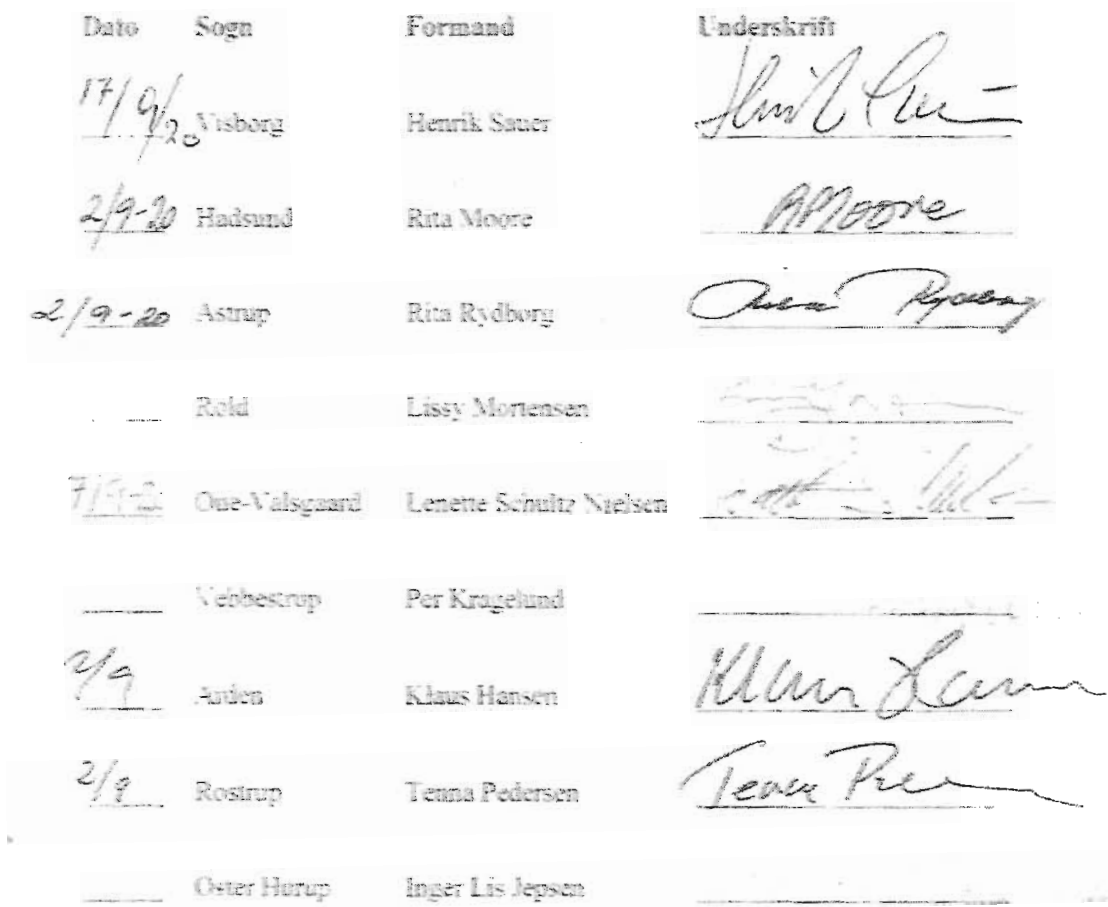 Dato Sogn Formand Underskrift
17/9/20 Visborg Henrik Sauer
2/9-20 Hadsund Rita Moore RMoore
2/9-20 Astrup Rita Rydborg Rydborg
Rold Lissy Mortensen
Oue-Valsgaard Lenette Schultz Nielsen
Vebbestrup Per Kragelund
2/9 Arden Klaus Hansen Klaus
2/9 Rostrup Tenna Pedersen Tenna
Øster Hurup Inger Lis Jepsen